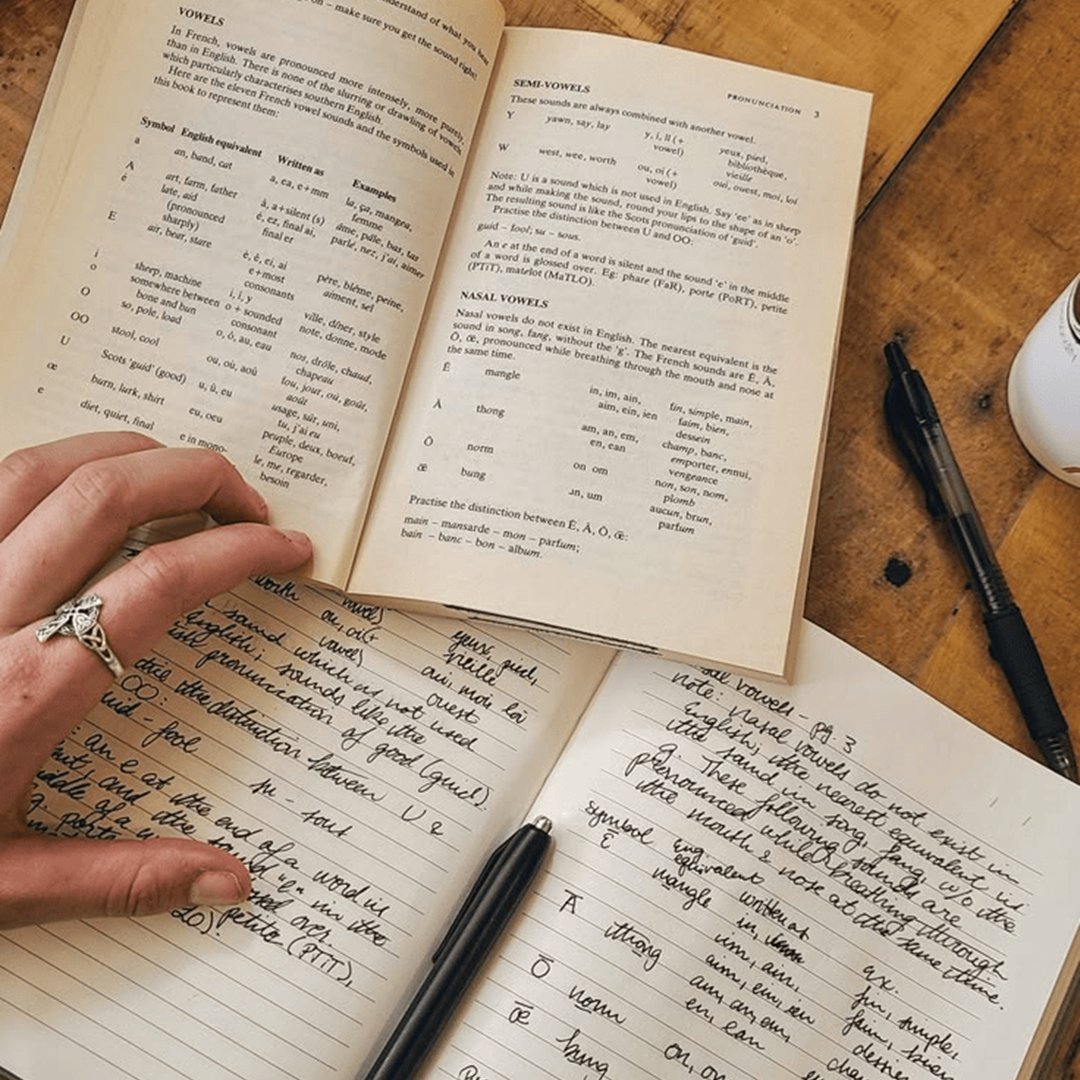 understand of what you hear
on – make sure you get the sound right!
VOWELS
In French, vowels are pronounced more intensely, more purely,
than in English. There is none of the slurring or drawling of vowels
which particularly characterises southern English.
Here are the eleven French vowel sounds and the symbols used in
this book to represent them:
Symbol English equivalent Written as Examples
a an, band, cat a, ea, e+mm la, ça, mangea,
femme
A art, farm, father â, a+silent (s) âme, pâle, bas, tas
é late, aid é, ez, final ai, parlé, nez, j'ai, aimer
(pronounced final er
sharply)
E air, bear, stare è, ê, ei, ai père, blême, peine,
e+most aiment, sel
consonants
i sheep, machine i, î, y ville, dîner, style
o somewhere between o + sounded note, donne, mode
bone and bun consonant
O so, pole, load o, ô, au, eau nos, drôle, chaud,
chapeau
OO stool, cool ou, où, aoû fou, jour, où, goût,
août
U Scots 'guid' (good) u, û, eu usage, sûr, uni,
tu, j'ai eu
œ burn, lurk, shirt eu, oeu peuple, deux, boeuf,
Europe
e diet, quiet, final e in mono- le, me, regarder,
besoin
PRONUNCIATION 3
SEMI-VOWELS
These sounds are always combined with another vowel.
Y yawn, say, lay y, i, ll (+ yeux, pied,
vowel) bibliothèque,
vieille
W west, wee, worth ou, oi (+ oui, ouest, moi, loi
vowel)
Note: U is a sound which is not used in English. Say 'ee' as in sheep
and while making the sound, round your lips to the shape of an 'o'.
The resulting sound is like the Scots pronunciation of 'guid'.
Practise the distinction between U and OO:
guid – fool; su – sous.
An e at the end of a word is silent and the sound 'e' in the middle
of a word is glossed over. Eg: phare (FaR), porte (PoRT), petite
(PTiT), matelot (MaTLO).
NASAL VOWELS
Nasal vowels do not exist in English. The nearest equivalent is the
sound in song, fang, without the 'g'. The French sounds are Ē, Ā,
Ō, œ̄, pronounced while breathing through the mouth and nose at
the same time.
Ē mangle in, im, ain, fin, simple, main,
aim, ein, ien faim, bien,
dessein
Ā thong am, an, em, champ, banc,
en, ean emporter, ennui,
vengeance
Ō norm on om non, son, nom,
plomb
œ̄ bung un, um aucun, brun,
parfum
Practise the distinction between Ē, Ā, Ō, œ̄:
main – mansarde – mon – parfum;
bain – banc – bon – album.
worth vowel) yeux, pied,
ou, oi(+ vieille
vowel) oui, moi loi
ouest
sound which is not used
English; sounds like the
pronunciation of good (guid).
the distinction between U &
OO:
guid – fool su – sout
: an e at the end of a word is
and the sound "e" in the
middle of a
over.
petite (PTiT),
vowels – pg. 3
note: Nasal vowels do not exist in
English; the nearest equivalent is
the sound in song, fang, w/o the
g. These following sounds are
pronounced while breathing through
the mouth & nose at the same time.
symbol English equivalent written as ex.
Ē mangle in, im, ain, fin, simple,
aim, ein, ien faim, bien,
Ā thong am, an, em,
en, ean
Ō norm on, om
œ̄ bung